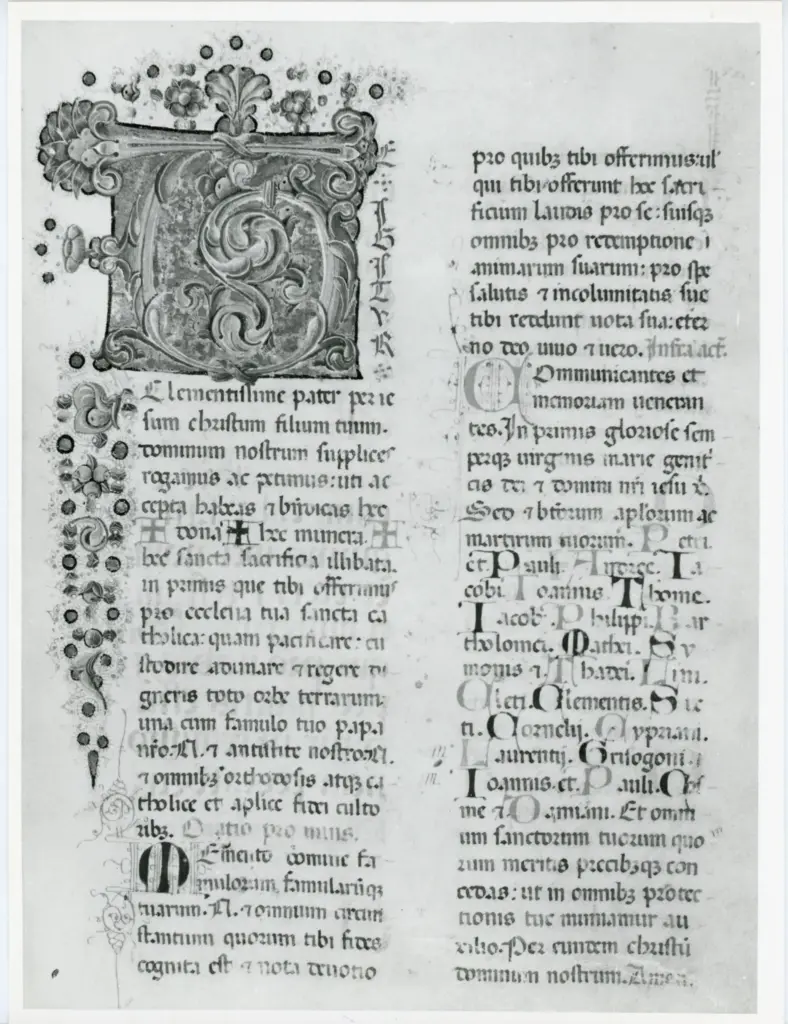 T
E
IGITVR
Clementissime pater per ie
sum christum filium tuum.
dominum nostrum supplices
rogamus ac petimus: uti ac
cepta habeas ⁊ bn̄dicas hec
✠ dona ✠ hec munera. ✠
hec sancta sacrificia illibata.
in primis que tibi offerimus
pro ecclesia tua sancta ca
tholica: quam pacificare: cu
stodire adunare ⁊ regere di
gneris toto orbe terrarum.
una cum famulo tuo papa
nr̄o. N. ⁊ antistite nostro. N.
⁊ omnibꝫ orthodosis atqꝫ ca
tholice et aplice fidei culto
ribꝫ. Oratio pro uiuis.
Memēto domine fa
mulorum famularūqꝫ
tuarum. N. ⁊ omnium circun
stantium quorum tibi fides
cognita est ⁊ nota deuotio
pro quibꝫ tibi offerimus: ul'
qui tibi offerunt hoc sacri
ficium laudis pro se: suisqꝫ
omnibꝫ pro redemptione
animarum suarum: pro spe
salutis ⁊ incolumitatis sue
tibi reddunt uota sua: eter
no deo uiuo ⁊ uero. Infra act.
Communicantes et
memoriam ueneran
tes. In primis gloriose sem
perqꝫ uirginis marie genit
cis dei ⁊ domini nr̄i iesu x̄.
Sed ⁊ bt̄orum apl̄orum ac
martirum tuorum. Petri.
et. Pauli. Andree. Ia
cobi. Ioannis. Thome.
Iacob. Philippi. Bar
tholomei. Mathei. Sy
monis ⁊. Thadei. Lini.
Cleti. Clementis. Six
ti. Cornelij. Cypriani.
Laurentij. Grisogoni.
Ioannis. et. Pauli. Cos
me ⁊. Damiani. Et omni
um sanctorum tuorum quo
rum meritis precibꝫqꝫ con
cedas: ut in omnibꝫ protec
tionis tue muniamur au
xilio. Per eundem christū
dominum nostrum. Amen.